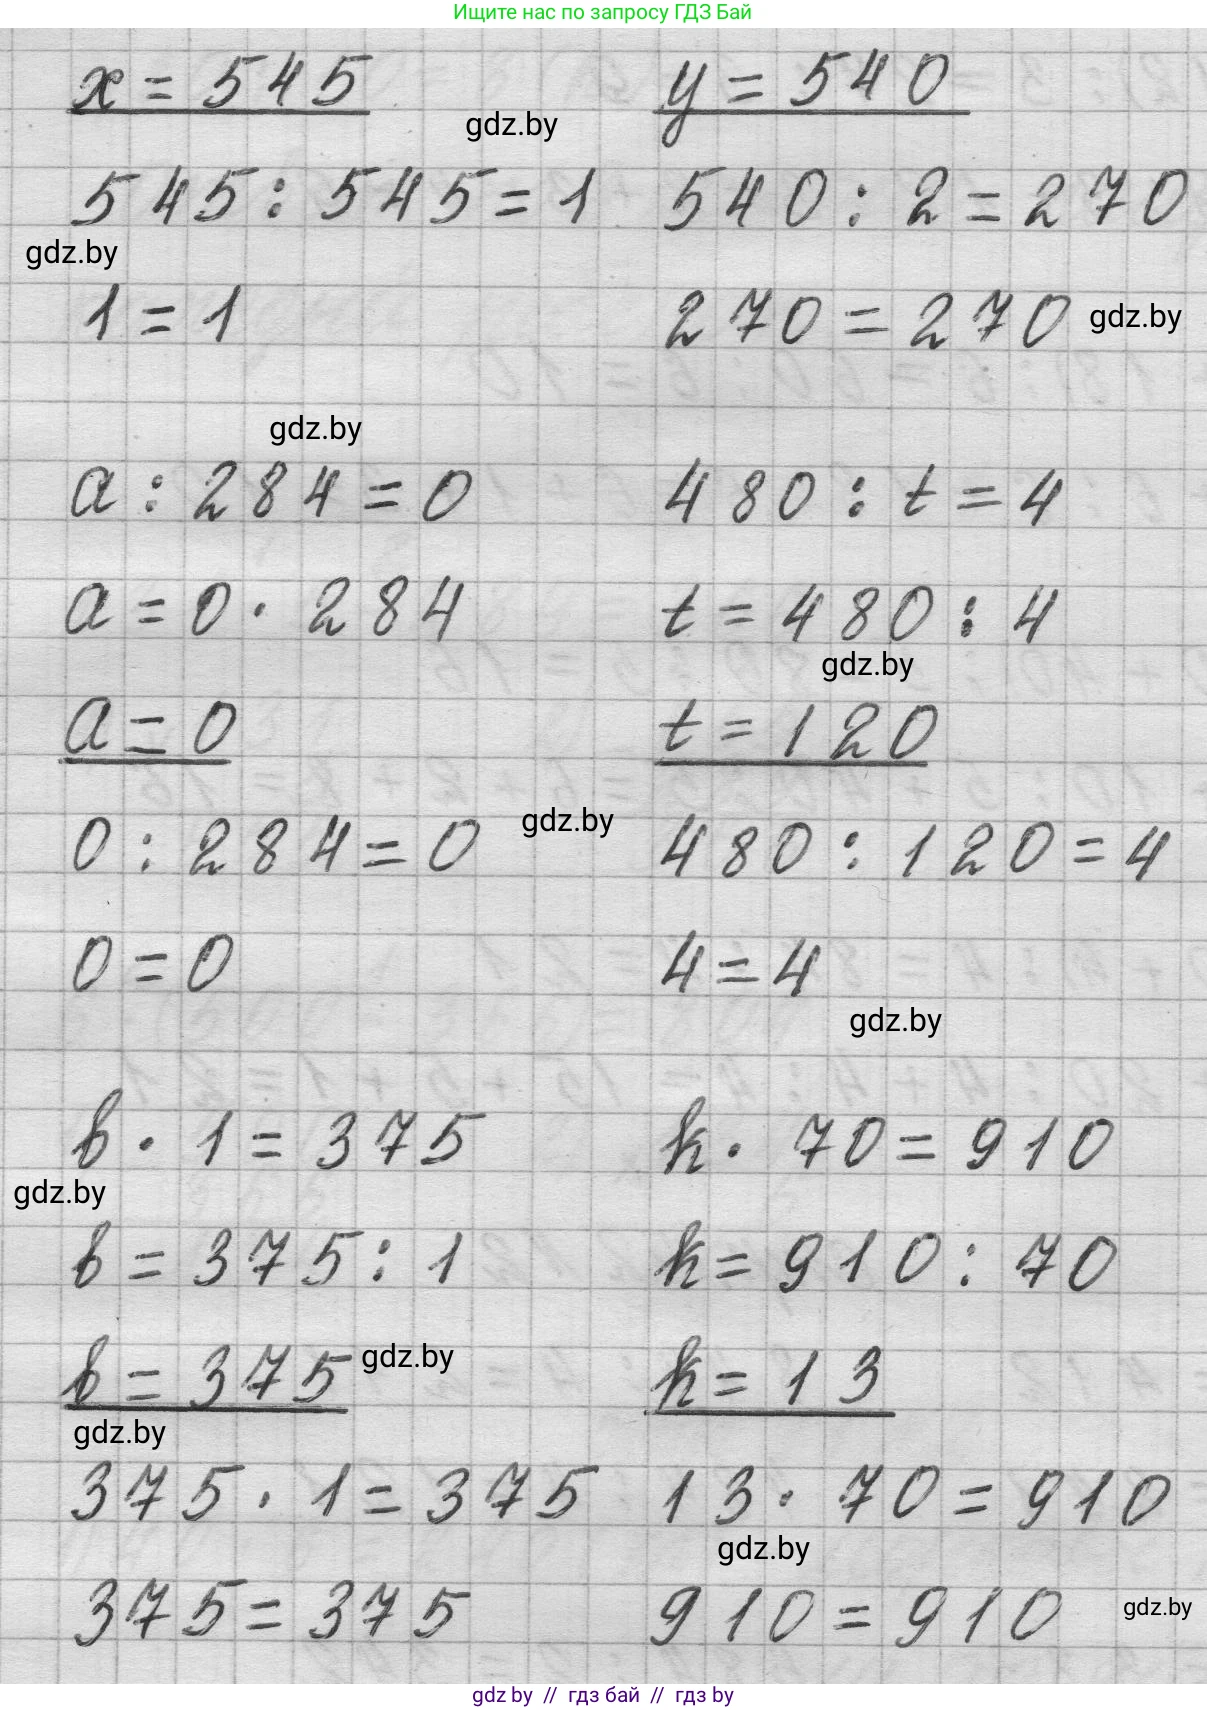 Ищите нас по запросу ГДЗ Бай
x = 545 y = 540
gdz.by
545 : 545 = 1 540 : 2 = 270
gdz.by
1 = 1 270 = 270 gdz.by
gdz.by
a : 284 = 0 480 : t = 4
a = 0 · 284 t = 480 : 4
gdz.by
a = 0 t = 120
gdz.by
0 : 284 = 0 480 : 120 = 4
0 = 0 4 = 4
gdz.by
b · 1 = 375 k · 70 = 910
gdz.by
b = 375 : 1 k = 910 : 70
b = 375 gdz.by k = 13
gdz.by
375 · 1 = 375 13 · 70 = 910
gdz.by
375 = 375 910 = 910 gdz.by
gdz by // гдз бай // гдз by